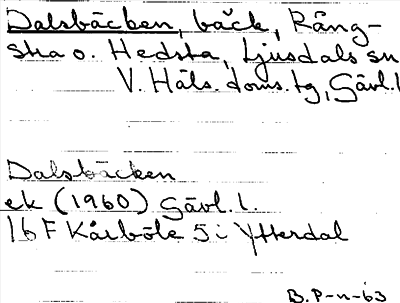 Dalsbäcken, bäck, Räng-
sta o. Hedsta, Ljusdals sn
V. Häls. doms. tg, Gävl. l
Dalsbäcken
ek (1960) Gävl. l.
16 F Kårböle 5 i Ytterdal
B. P-n-63